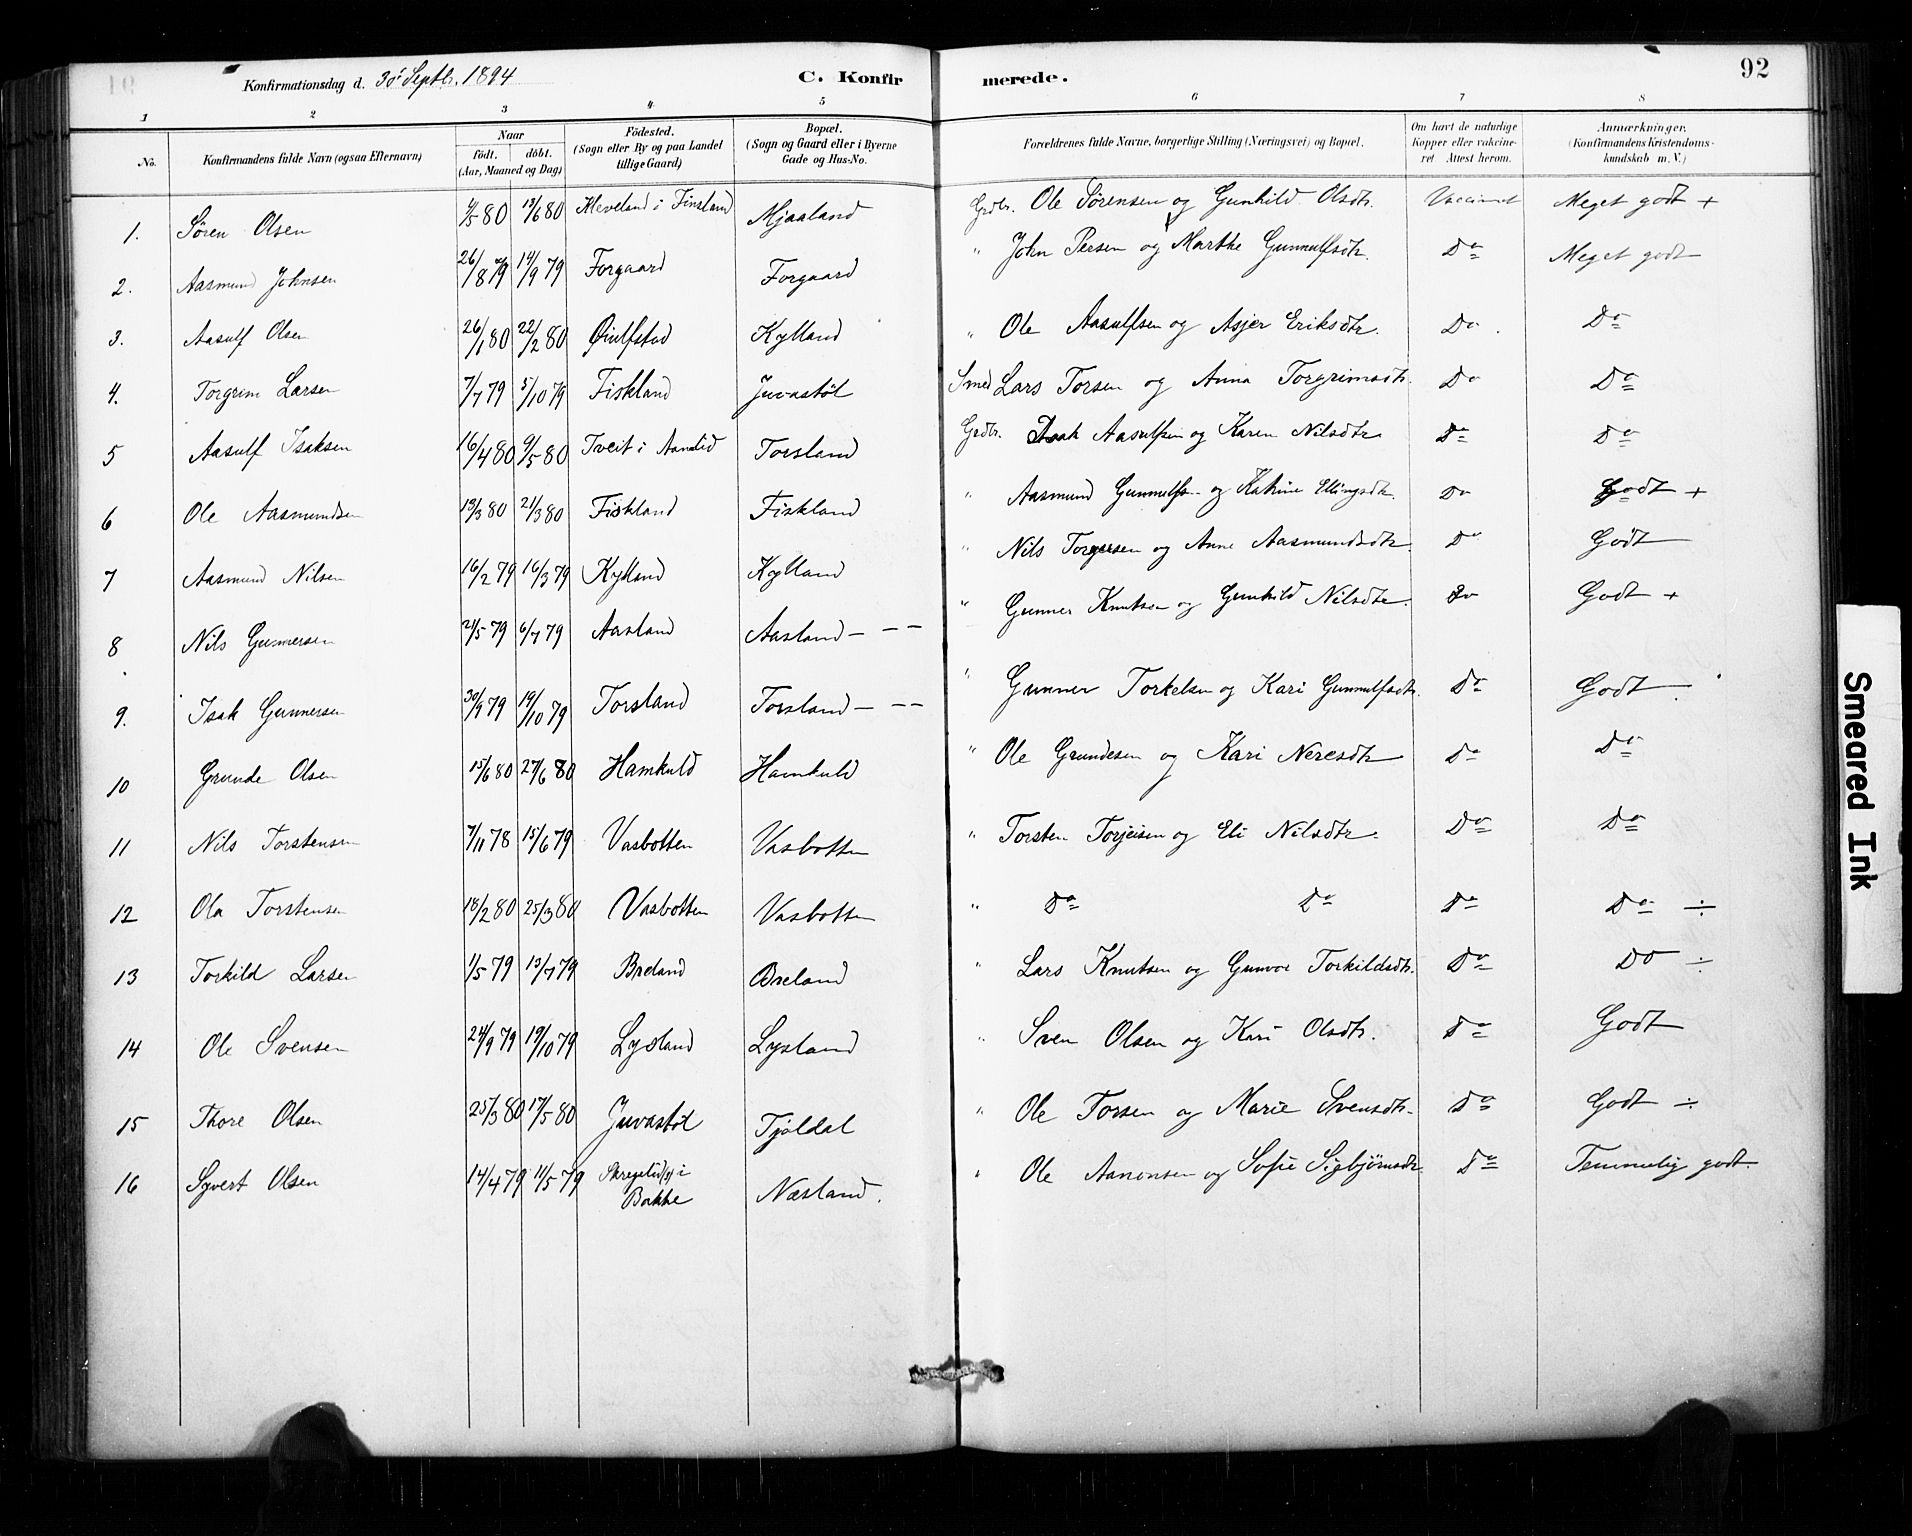 Konfirmationsdag d. 30' Septbr. 1894 C. Konfir merede. 92
1 2 3 4 5 6 7 8
No. Konfirmandens fulde Navn (ogsaa Efternavn) Naar födt. döbt. (Aar, Maaned og Dag) Födested. (Sogn eller By og paa Landet tillige Gaard) Bopæl. (Sogn og Gaard eller i Byerne Gade og Hus-No. Forældrenes fulde Navne, borgerlige Stilling (Næringsvei) og Bopæl. Om havt de naturlige Kopper eller vakcineret Attest herom. Anmærkninger. (Konfirmandens Kristendomskundskab m. V.)
1. Søren Olsen 4/5 80 13/6 80 Kleveland i Finsland Mjaaland Grdbr. Ole Sørensen og Gunhild Olsdtr. Vaccineret Meget godt +
2. Aasmund Johnsen 26/8 79 14/9 79 Forgaard Forgaard " John Persen og Marthe Gunnulfsdtr. Do Meget godt
3. Aasulf Olsen 26/1 80 22/2 80 Øiulfstad Kylland " Ole Aasulfsen og Asjer Eriksdtr. Do. Do
4. Torgrim Larsen 7/7 79 5/10 79 Fiskland Juvastøl Smed Lars Torsen og Anna Torgrimsdtr. Do Do
5 Aasulf Isaksen 16/4 80 9/5 80 Tveit i Aaserald Torsland Grdbr. Isak Aasulfsen og Karen Nilsdtr Do Do
6 Ole Aasmundsen 13/3 80 21/3 80 Fiskland Fiskland " Aasmund Gunnulfsn og Katrine Ellingsdtr. Do Godt +
7 Aasmund Nilsen 16/2 79 16/3 79 Kylland Kylland " Nils Torgersen og Anne Aasmundsdtr. Do Godt
8 Nils Gunnersen 21/5 79 6/7 79 Aasland Aasland - - - " Gunner Knutsen og Gunhild Nilsdtr. Do Godt +
9. Isak Gunnersen 30/9 79 19/10 79 Torsland Torsland - - - " Gunner Torkelsen og Kari Gunnulfsdtr. Do Godt.
10 Grunde Olsen 15/6 80 27/6 80 Hamkuld Hamkuld " Ole Grundesen og Kari Neresdtr Do Do
11 Nils Torstensen 7/11 78 15/6 79 Vasbotten Vasbotten " Torsten Torjeisen og Eli Nilsdtr. Do Do
12 Ola Torstensen 18/2 80 25/3 80 Vasbotten Vasbotten " Do Do Do Do ÷
13 Torkild Larsen 1/5 79 13/7 79 Breland Breland " Lars Knutsen og Gunvor Torkildsdtr. Do Do ÷
14 Ole Svensen 24/9 79 19/10 79 Lysland Lysland " Sven Olsen og Kari Olsdtr. Do Godt
15 Thore Olsen 25/3 80 17/5 80 Juvastøl Tjøldal " Ole Torsen og Marie Svensdtr. Do Godt ÷
16 Syvert Olsen 14/4 79 11/5 79 i Bakke Næsland. " Ole Aanonsen og Sofie Sigbjørnsdtr Do Temmelig godt.
Smeared Ink